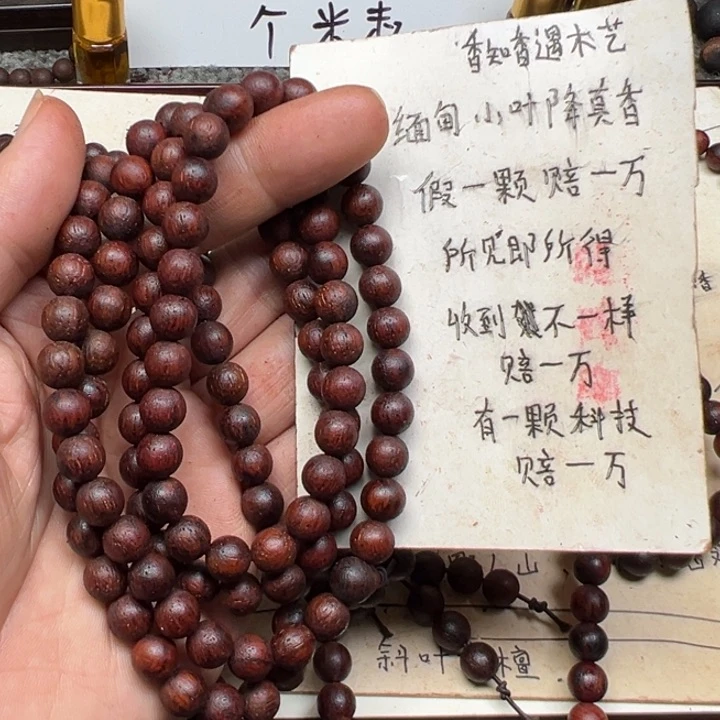 香知香遇木艺
缅甸小叶降真香
假一颗赔一万
所见即所得
收到不一样
赔一万
有一颗科技
赔一万
斜叶檀